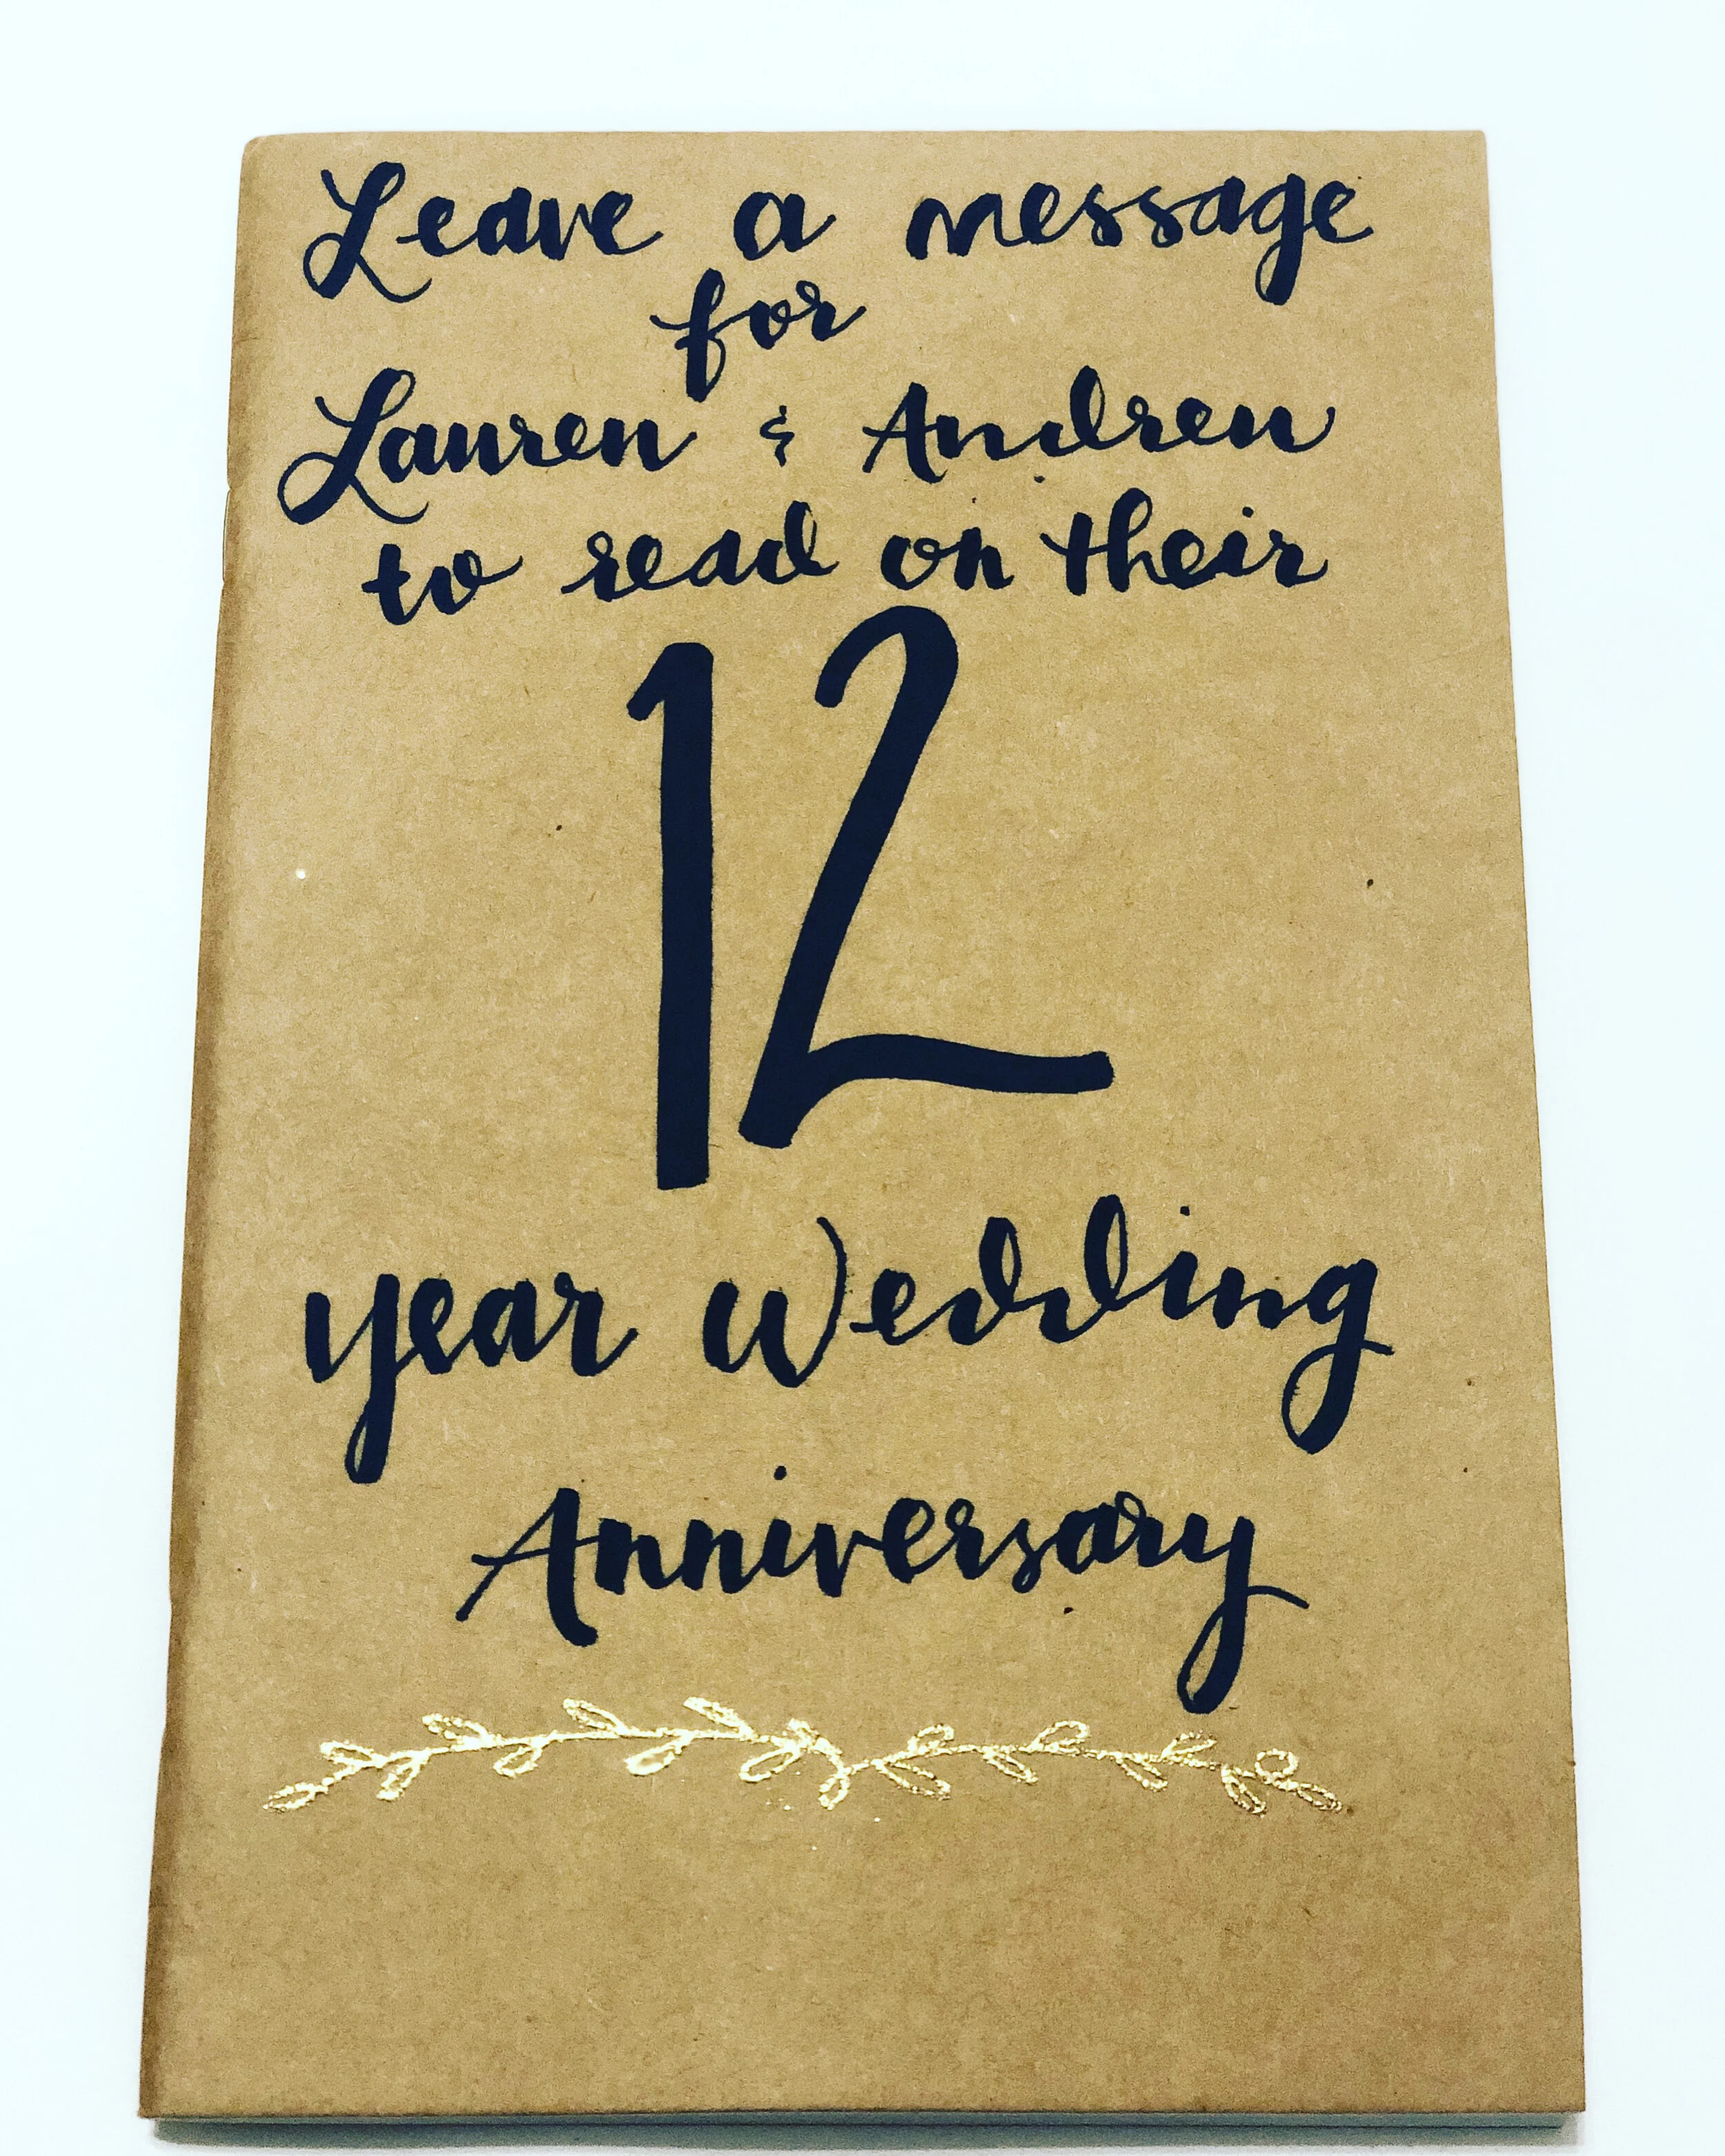 Leave a message
for
Lauren & Andrew
to read on their
12
year Wedding
Anniversary